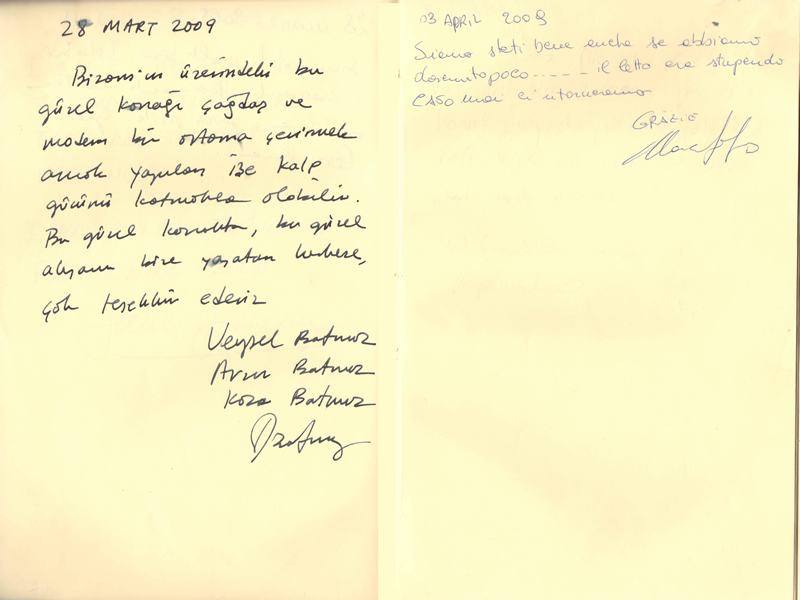 28 MART 2009
Bizans'ın üzerindeki bu
güzel konağı çağdaş ve
modern bir ortama çevirmek
ancak yapılan işe kalp
gücünü katmakla olabilir.
Bu güzel konakta, bu güzel
akşamı bize yaşatan herkese,
çok teşekkür ederiz
Veysel Batmaz
Batmaz
Koza Batmaz
03 APRIL 2009
Siamo stati bene anche se abbiamo
dormito poco..----- il letto era stupendo
caso mai ci ritorneremo
GRAZIE